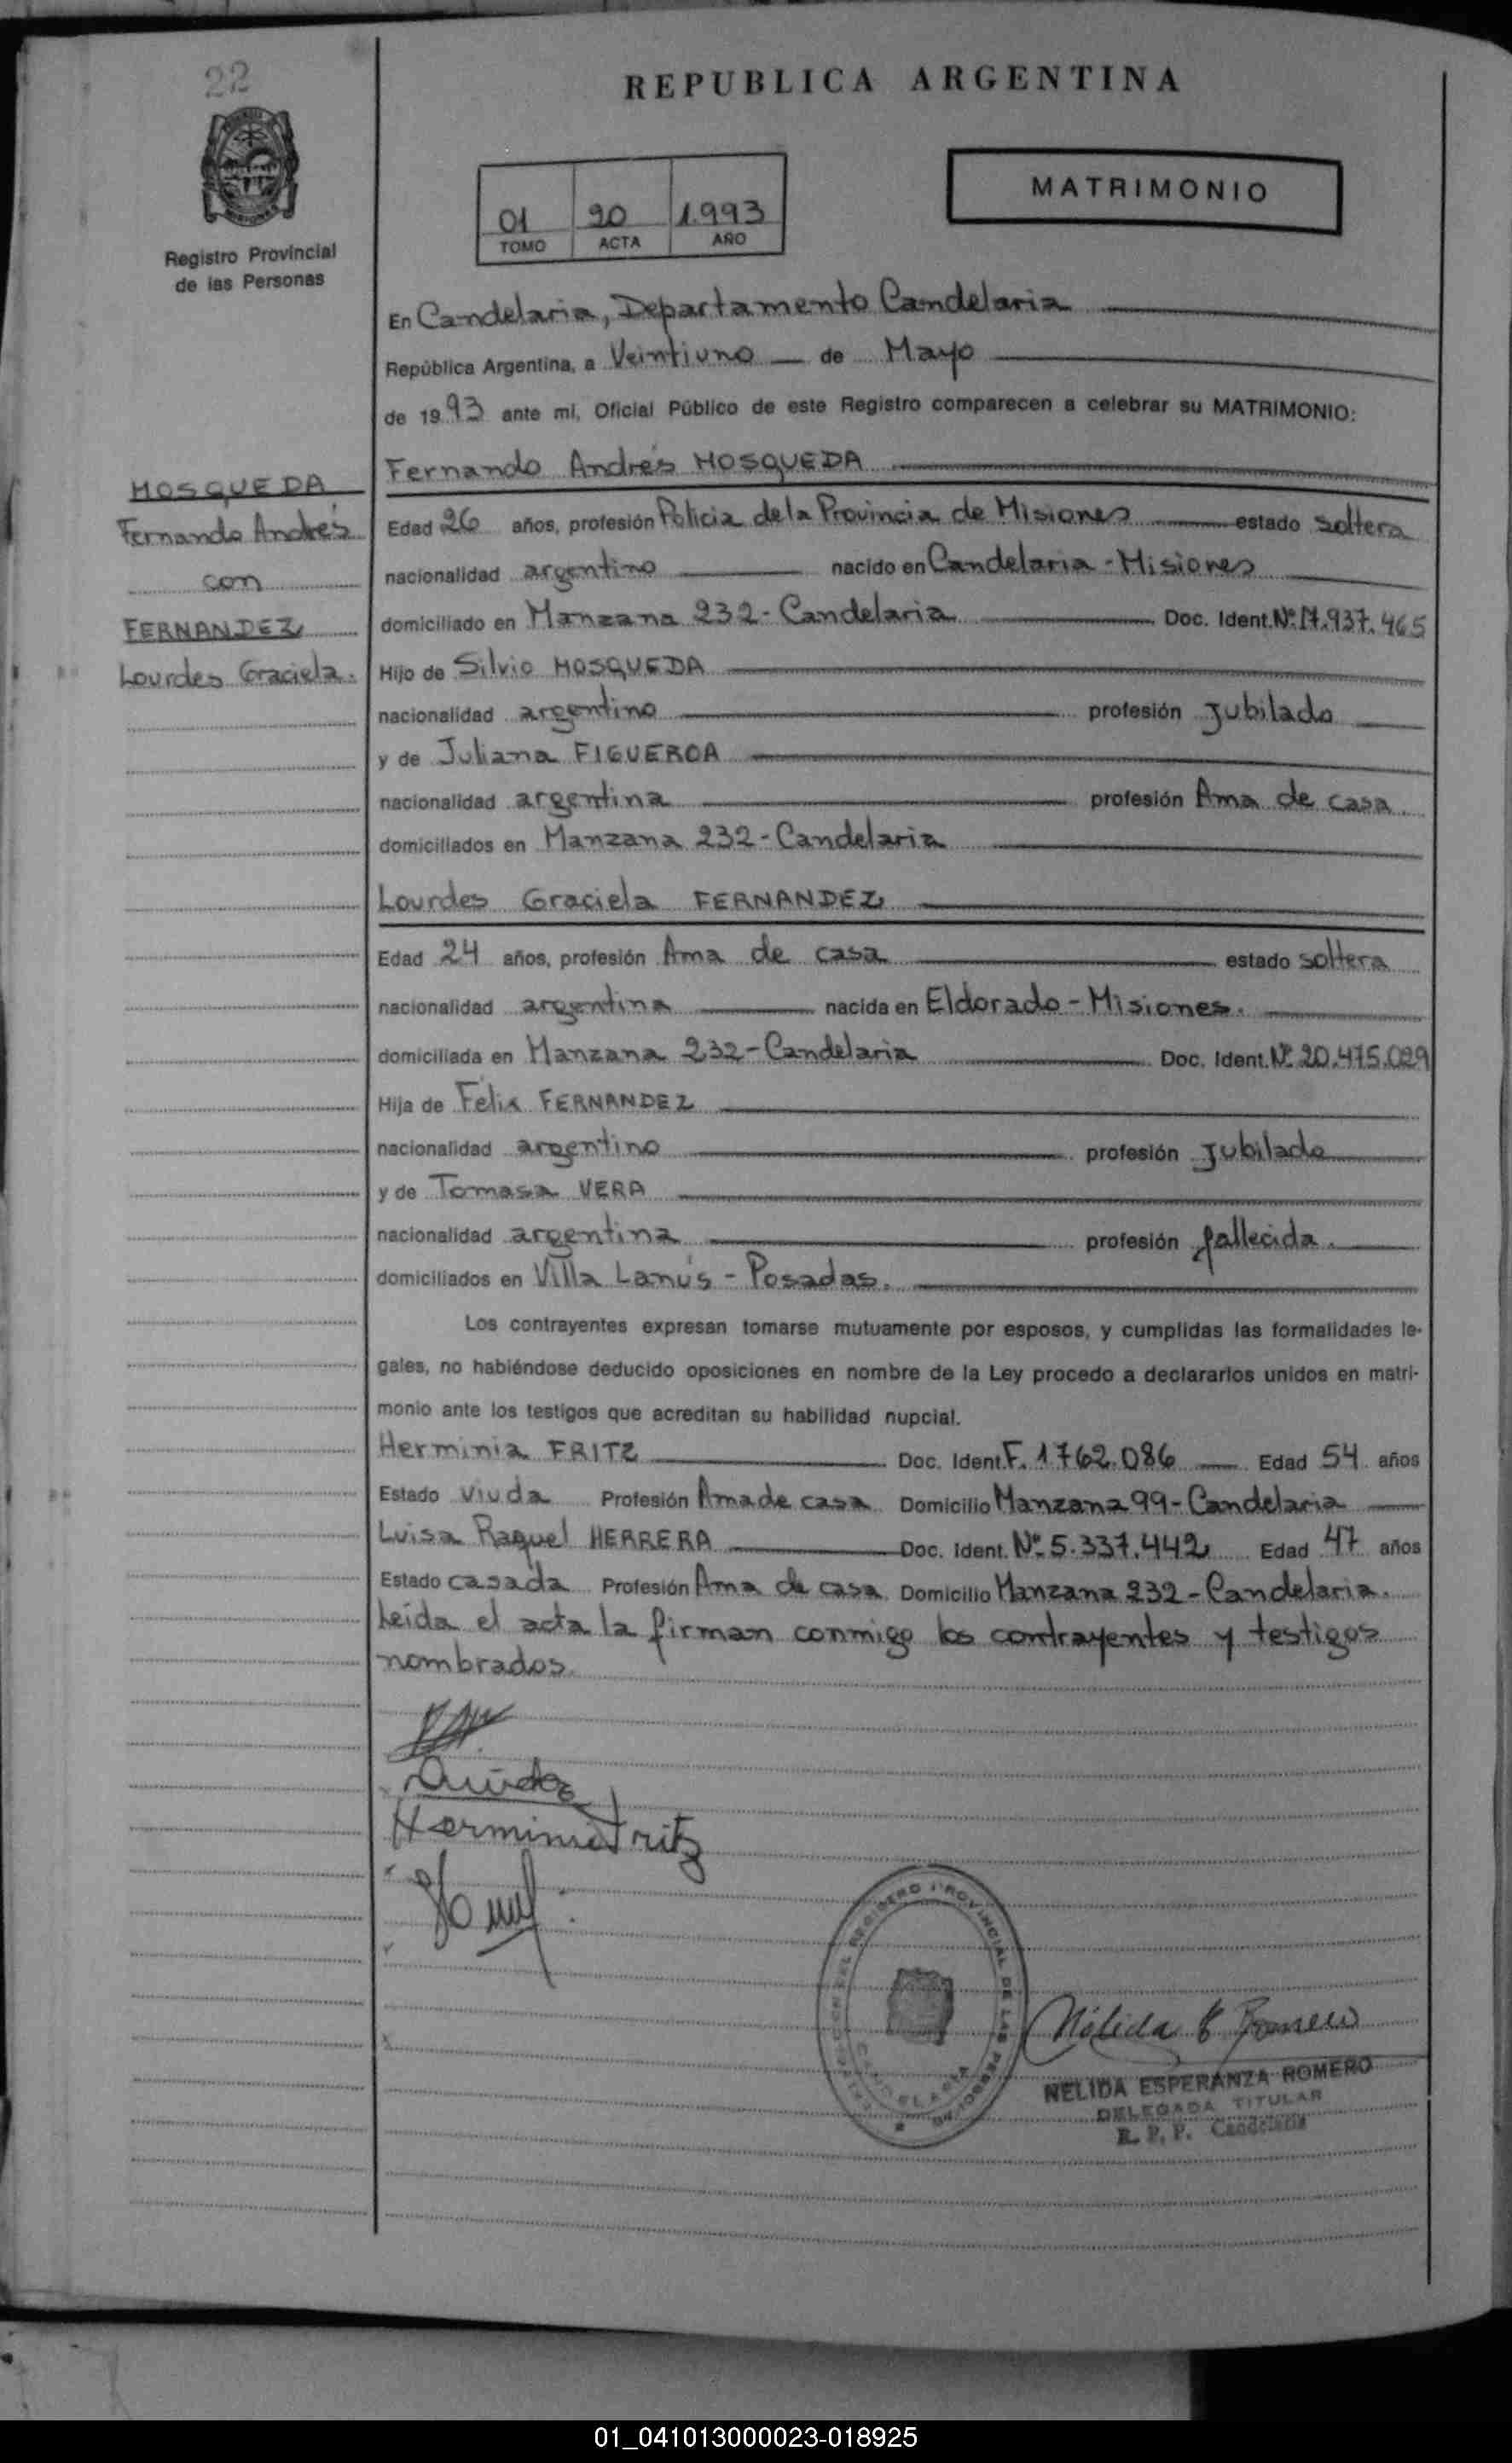 22
REPUBLICA ARGENTINA
MATRIMONIO
01 20 1.993
TOMO ACTA AÑO
Registro Provincial
de las Personas
En Candelaria, Departamento Candelaria
República Argentina, a Veintiuno de Mayo
de 1993 ante mí, Oficial Público de este Registro comparecen a celebrar su MATRIMONIO:
MOSQUEDA
Fernando Andrés
con
FERNANDEZ
Lourdes Graciela.
Fernando Andrés MOSQUEDA
Edad 26 años, profesión Policia de la Provincia de Misiones estado soltera
nacionalidad argentino nacido en Candelaria - Misiones
domiciliado en Manzana 232 - Candelaria Doc. Ident. Nº 17.937.465
Hijo de Silvio MOSQUEDA
nacionalidad argentino profesión Jubilado
y de Juliana FIGUEROA
nacionalidad argentina profesión Ama de casa
domiciliados en Manzana 232 - Candelaria
Lourdes Graciela FERNANDEZ
Edad 24 años, profesión Ama de casa estado soltera
nacionalidad argentina nacida en Eldorado - Misiones.
domiciliada en Manzana 232 - Candelaria Doc. Ident. Nº 20.475.029
Hija de Félix FERNANDEZ
nacionalidad argentino profesión Jubilado
y de Tomasa VERA
nacionalidad argentina profesión fallecida.
domiciliados en Villa Lanús - Posadas.
Los contrayentes expresan tomarse mutuamente por esposos, y cumplidas las formalidades le-
gales, no habiéndose deducido oposiciones en nombre de la Ley procedo a declararlos unidos en matri-
monio ante los testigos que acreditan su habilidad nupcial.
Herminia FRITZ Doc. Ident. F. 1.762.086 Edad 54 años
Estado viuda Profesión Ama de casa Domicilio Manzana 99 - Candelaria
Luisa Raquel HERRERA Doc. Ident. Nº 5.337.442 Edad 47 años
Estado casada Profesión Ama de casa Domicilio Manzana 232 - Candelaria.
Leída el acta la firman conmigo los contrayentes y testigos
nombrados.
Herminia Fritz
REGISTRO PROVINCIAL DE LAS PERSONAS
CANDELARIA
Nélida E Romero
NELIDA ESPERANZA ROMERO
DELEGADA TITULAR
R. P. P. Candelaria
01_041013000023-018925